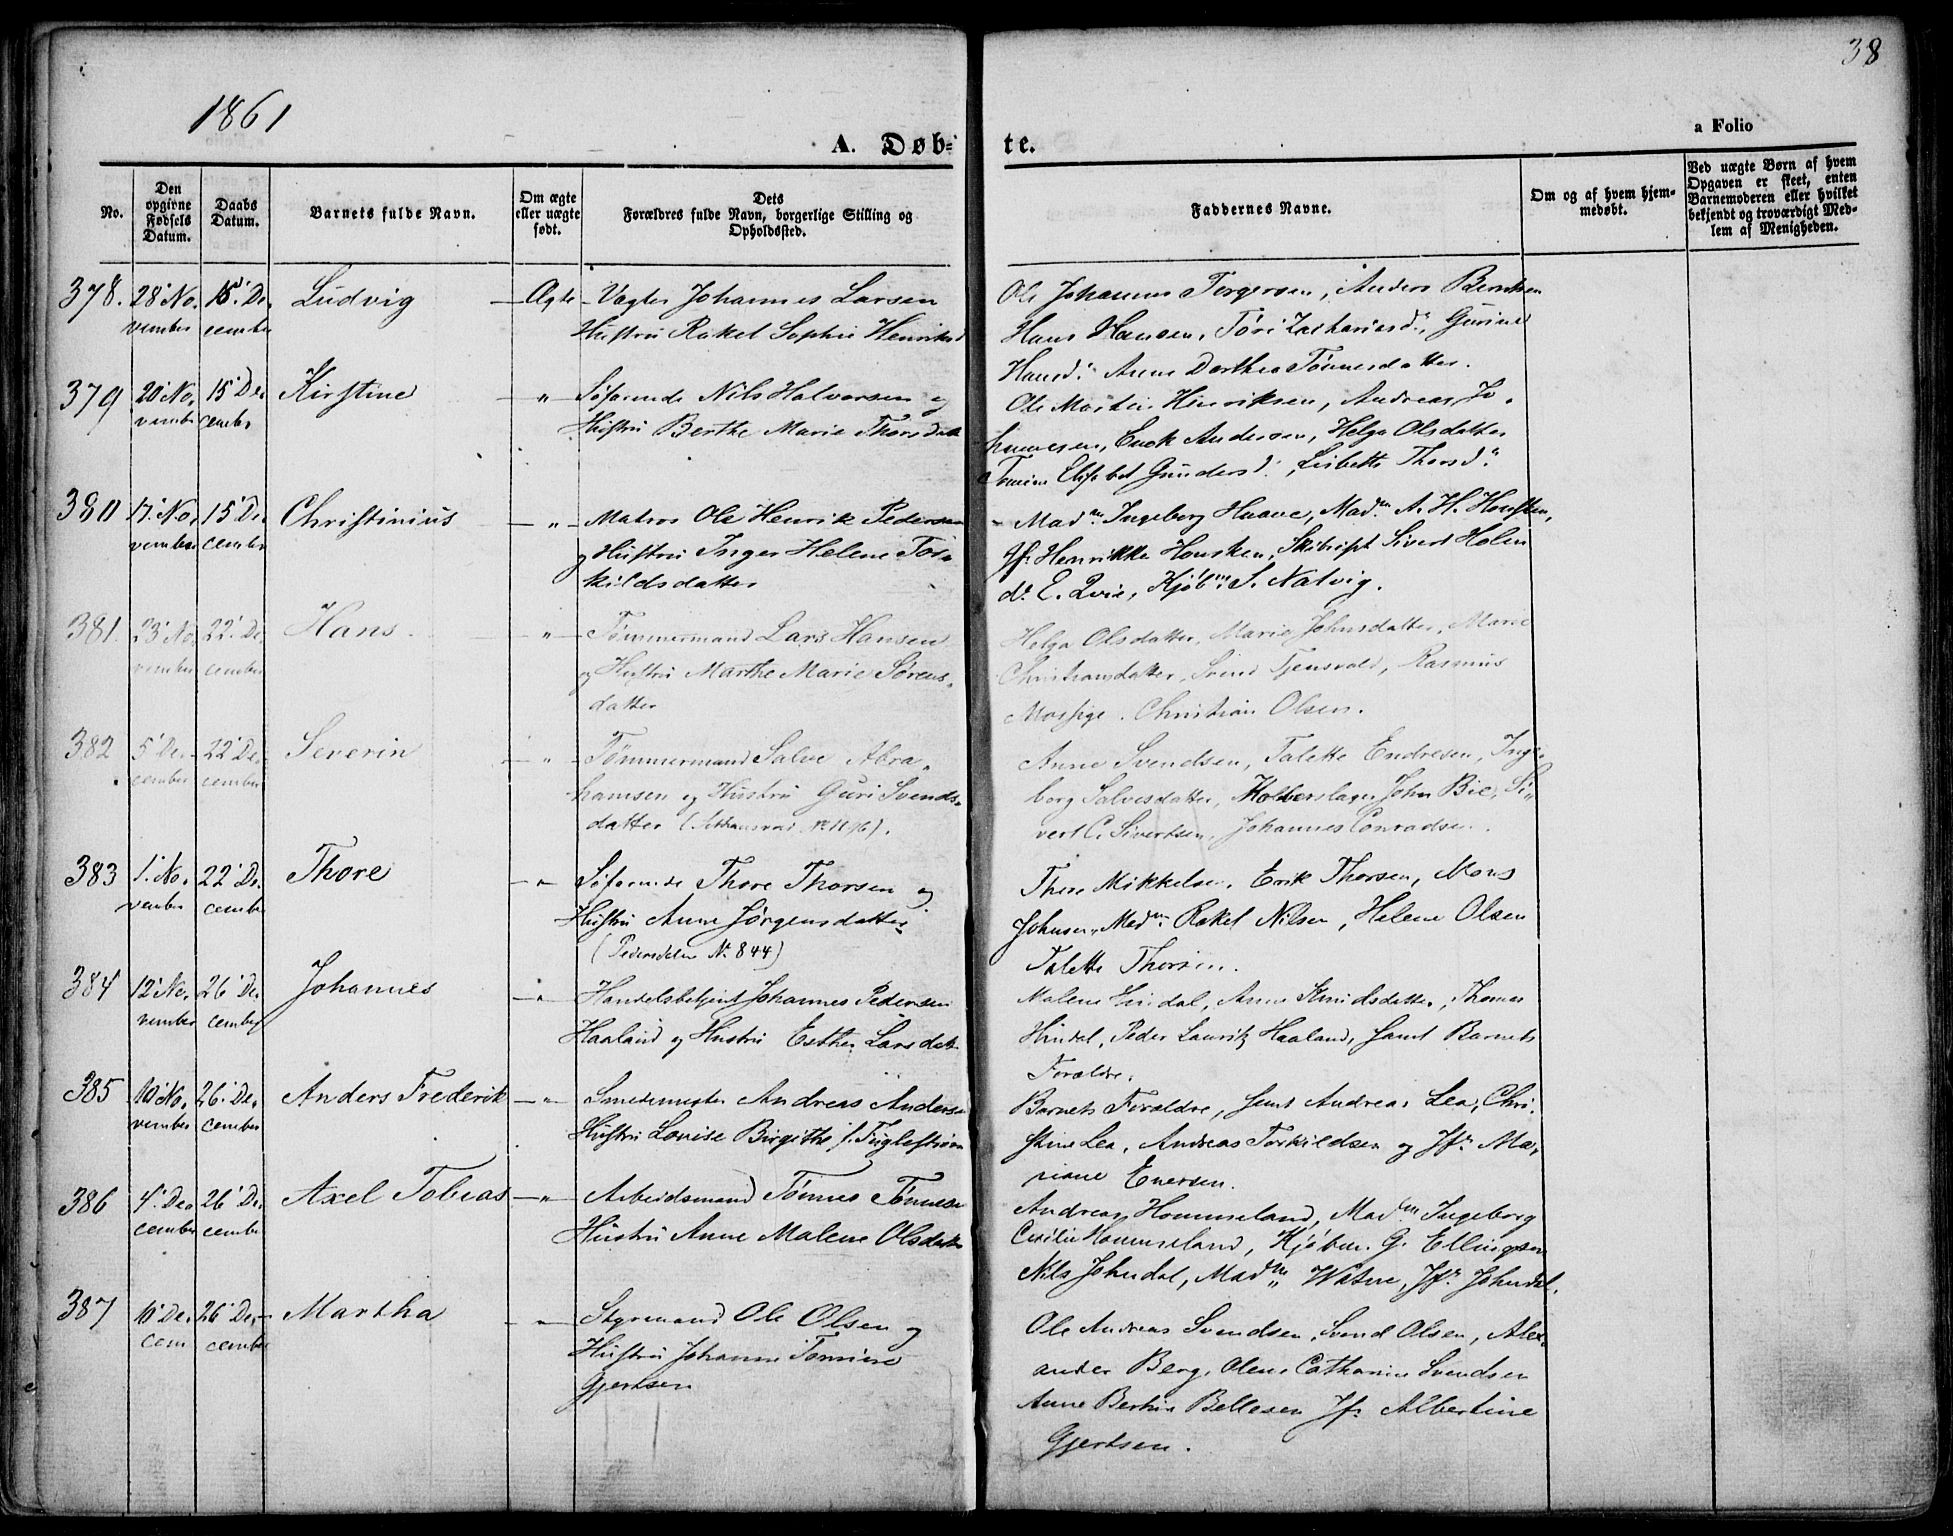 1861
38
A. Døb-
te.
a Folio
No.
Den
opgivne
Fødsels
Datum.
Daabs
Datum.
Barnets fulde Navn.
Om ægte
eller uægte
født.
Dets
Forældres fulde Navn, borgerlige Stilling og
Opholdssted.
Faddernes Navne.
Om og af hvem hjem-
medøbt.
Ved uægte Børn af hvem
Opgaven er skeet, enten
Barnemoderen eller hvilket
bekjendt og troværdigt Med-
lem af Menigheden.
378. 28' No- 15' De- Ludvig — Ægte — Vægter Johannes Larsen
vember cember Hustru Rakel Sophie Henriksd
Ole Johannes Torgersen, Anders Berntsen
Hans Hansen, Tøri Zachariasd:, Gurine
Hansd: Anne Dorthea Tønnesdatter.
379 20' No- 15' De- Kirstine — " — Søfarende Nils Halvorsen og
vember cember Hustru Berthe Marie Thorsdatt
Ole Martin Hinriksen, Andreas Jo-
hannesen, Enok Andersen, Helga Olsdatter
Tomine Elisabet Gundersd:, Lisbeth Thorsd:
380 17' No- 15' De- Christinius — " — Matros Ole Henrik Pedersen
vember cember og Hustru Inger Helene Tor-
kildsdatter
Madm: Ingeborg Haave, Madm: A. H. Housken,
Jfr Henrikke Housken, Skibskpt Sivert Holen
do E. Qvie, Kjøbm: S. Natvig.
381. 23' No- 22' De- Hans — " — Tømmermand Lars Hansen
vember cember og Hustru Marthe Marie Sørens-
datter
Helga Olsdatter, Marie Johnsdatter, Marie
Christiansdatter, Svend Tjensvold, Rasmus
Mossige. Christian Olsen.
382 5' De- 22' De- Severin — " — Tømmermand Salve Abra-
cember cember hamsen og Hustru Guri Svends-
datter
Anne Svendsen, Talette Endresen, Inge-
borg Salvesdatter, John Bie, Si-
vert C. Sivertsen, Johannes Conradsen.
383 1' No- 22' De- Thore — " — Søfarende Thore Thorsen og
vember cember Hustru Anne Jørgensdatter
(Pedersdelen No 844)
Thore Mikkelsen, Erik Thorsen, Mons
Johnsen, Madm: Rakel Nilsen, Helene Olsen
Talette Thorsen.
384 12' No- 26' De- Johannes — " — Handelsbetjent Johannes Pedersen
vember cember Haaland og Hustru Esther Larsdatt
Malene Hindal, Anne Knudsdatter, Thomas
Hindal, Peder Lauritz Haaland, samt Barnets
Forældre.
385 10' No- 26' De- Anders Frederik — " — Smedemester Andreas Andersen
vember cember Hustru Lovise Birgitte f. Fuglestrøm
Barnets Forældre, samt Andreas Lea, Chri-
stine Lea, Andreas Torkildsen og Jfr Ma-
riane Enersen.
386 4' De- 26' De- Axel Tobias — " — Arbeidsmand Tønnes Tønnesen
cember cember Hustru Anne Malene Olsdatt
Andreas Hommeland, Madm Ingeborg
Cecilie Hommeland, Kjøbm. G. Ellingsen
Nils Johndal, Madm Watne, Jfr Johndal.
387 10' De- 26' De- Martha — " — Styrmand Ole Olsen og
cem cember Hustru Johanne Tomine
Gjertsen
Ole Andreas Svendsen, Svend Olsen, Alex-
ander Berg, Olene Cathrine Svendsen
Anne Bertine Bellesen Jfr Albertine
Gjertsen.